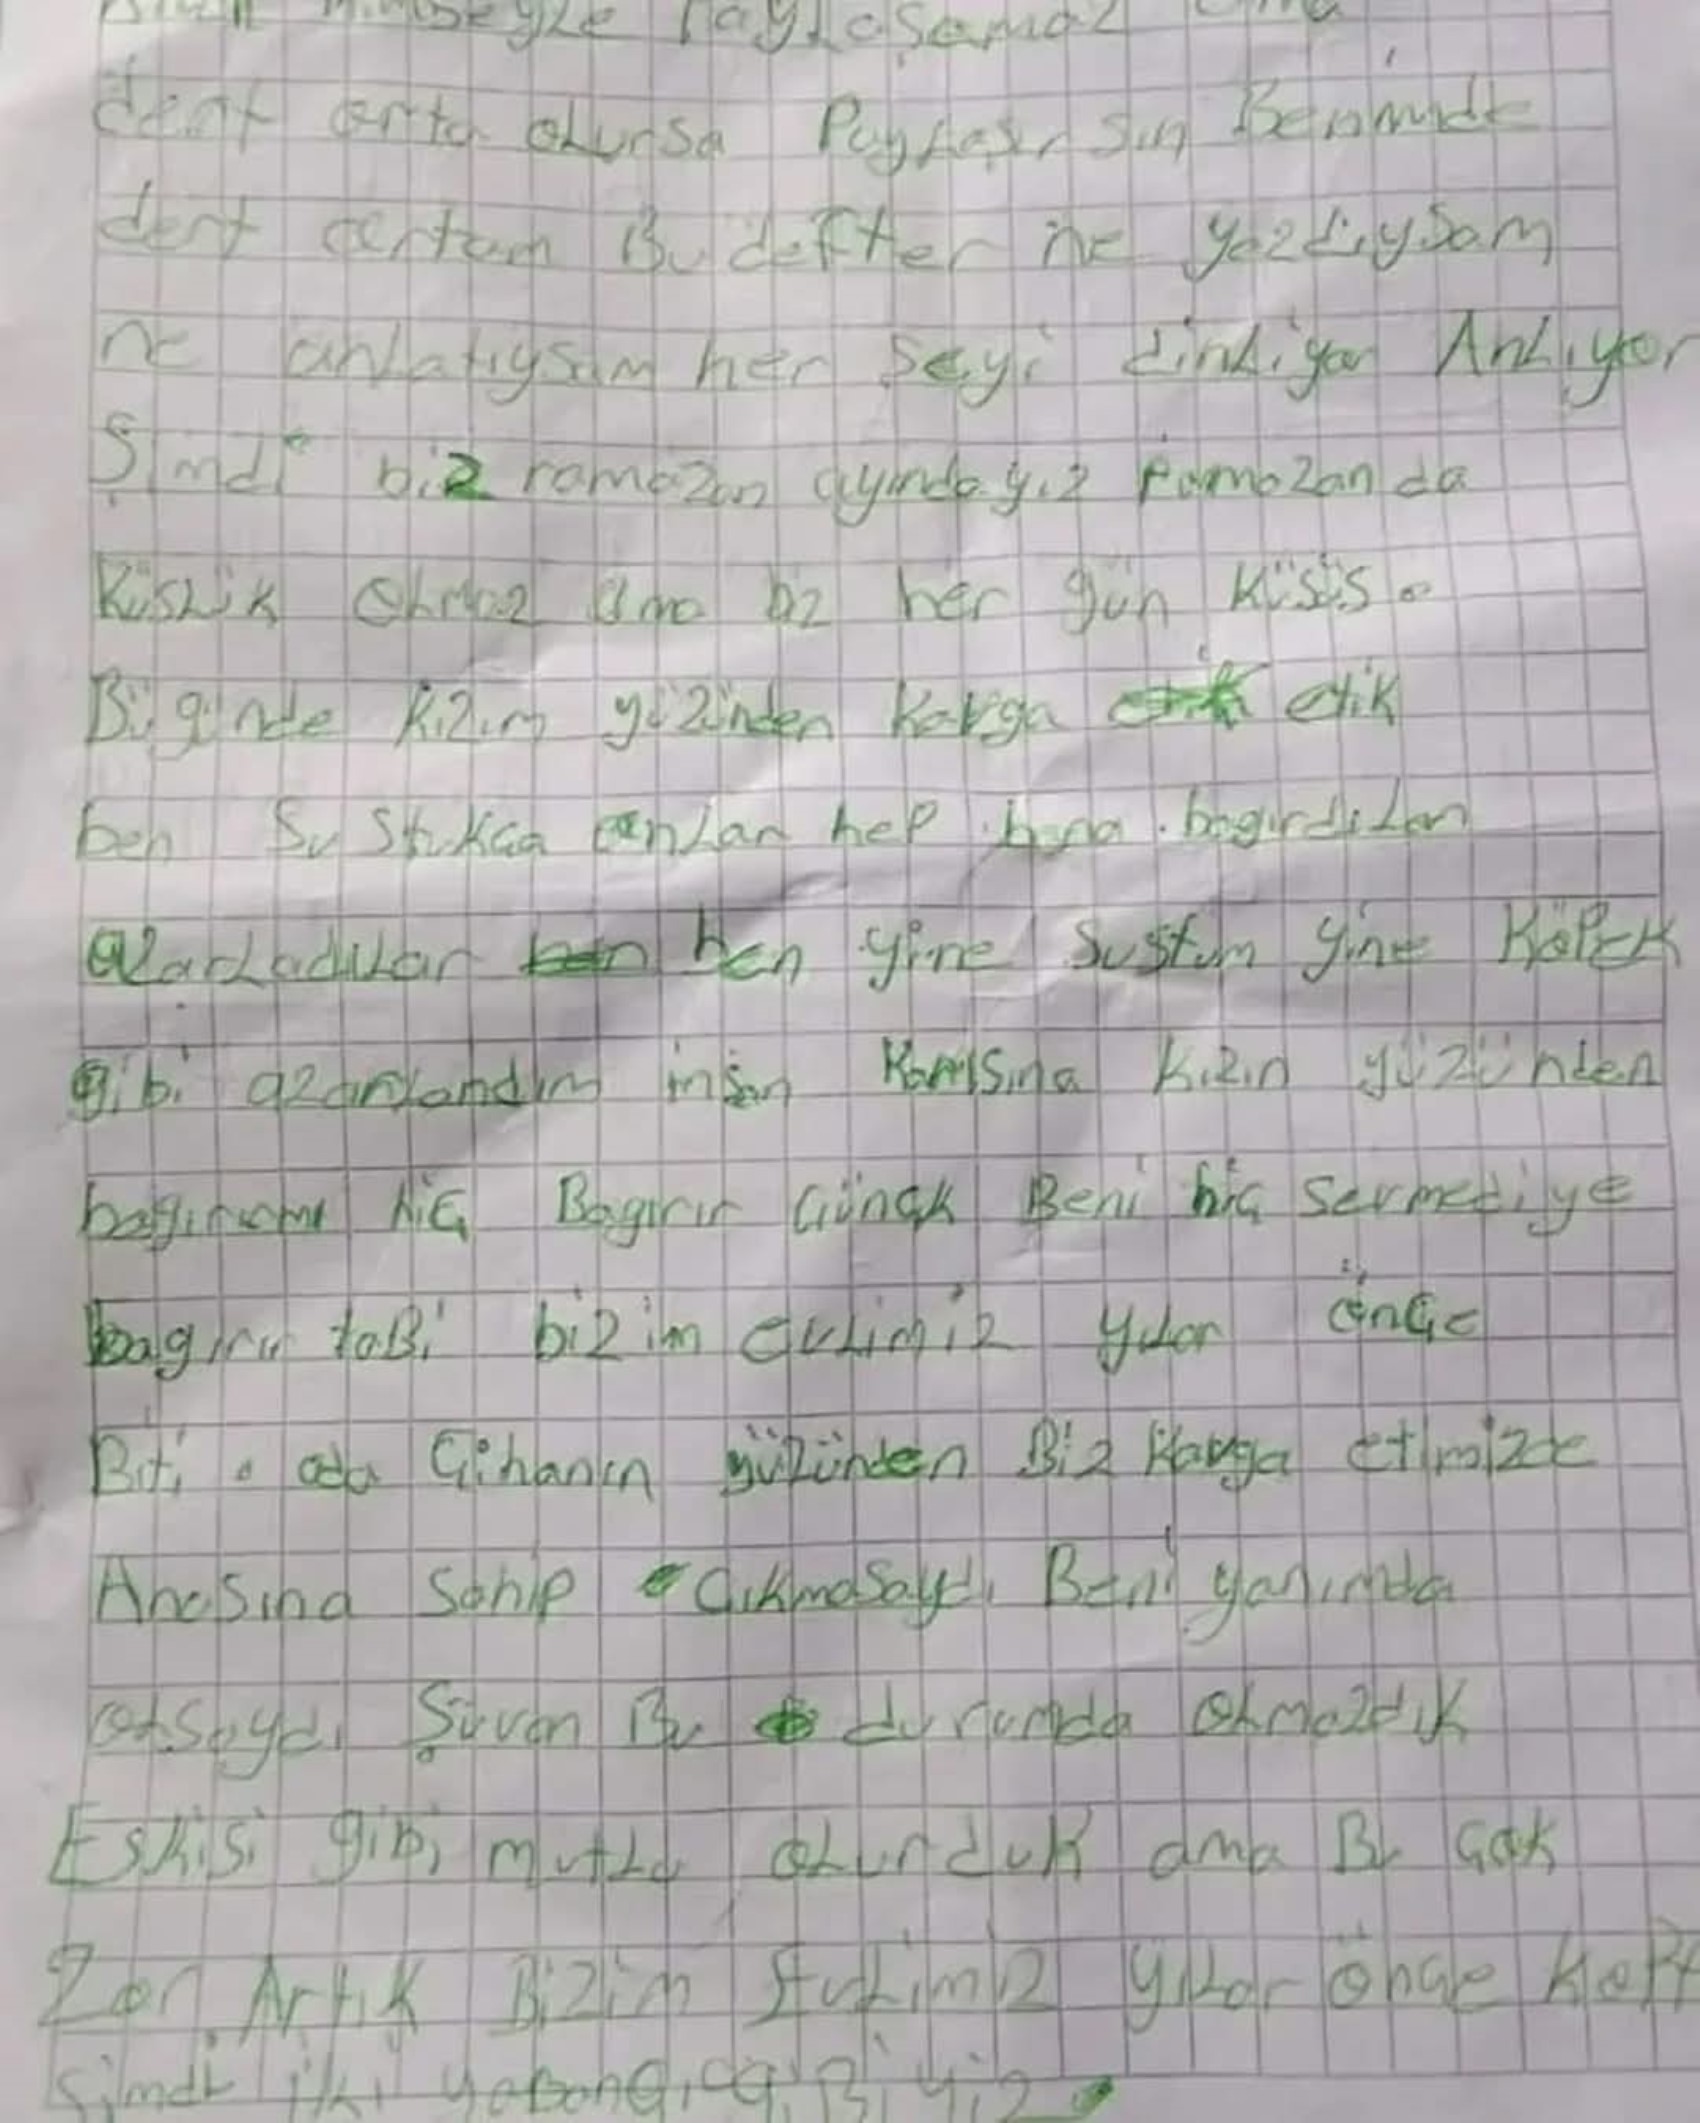 kimseyle Paylaşamaz ama
dert orta olursa Paylaşırsın Benimde
dert ortam Bu defter ne yazdıysam
ne anlatıysam her şeyi dinliyor Anlıyor
Şimdi biz ramazan ayındayız ramazanda
Küslük olmaz ama biz her gün küsüs.
Bügünde kızım yüzünden kavga etik
ben Sustukça onlar hep bana bagırdılar
azarladılar ben yine sustum yine köpek
gibi azarlandım insan karısına kızın yüzünden
bagırırmı hiç Bagırır Günçk Beni hiç sevmediye
bagırır taBi bizim evlimiz yılar önçe
Biti. oda Cihanın yüzünden Biz kavga etimizde
Anasına Sahip Çıkmasaydı Beni yanımda
olsaydı Şuvan Bu durumda olmazdık
Eskisi gibi mutlu olurduk ama Bu çok
Zor Artık Bizim Evlimiz yılar önçe
Şimdi iki yabançı giBiyiz